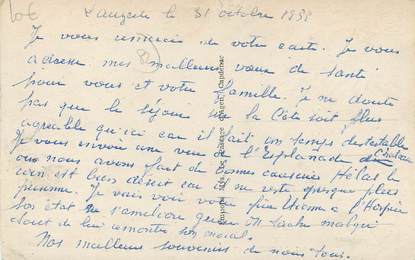 le 31 octobre
Je vous remercie de votre carte. Je vous
adresse mes meilleurs vœux de santé
pour vous et votre famille. Je ne doute
pas que le séjour sur la Côte soit plus
agréable qu'ici car il fait un temps détestable
Je vous envoie une vue de l'Esplanade
où nous avons fait de bonnes causeries Hélas le
coin est bien désert car il ne reste presque plus
personne. Je vais voir votre à l'Hospice
Son état ne s'améliore guère malgré
tout de lui remonter son moral.
Nos meilleurs souvenirs de nous tous.